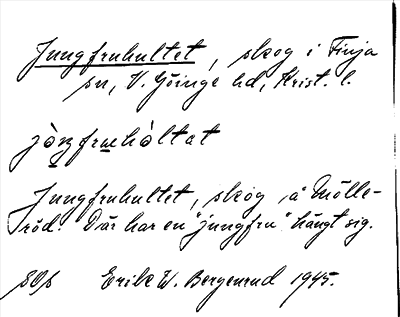 Jungfruhultet, skog i Finja
sn, V. Göinge hd, Krist. l.
jòŋfrɯhòltat
Jungfruhultet, skog å Mölle-
röd. Där har en "jungfru" hängt sig.
Erik W. Bergenrud 1945.